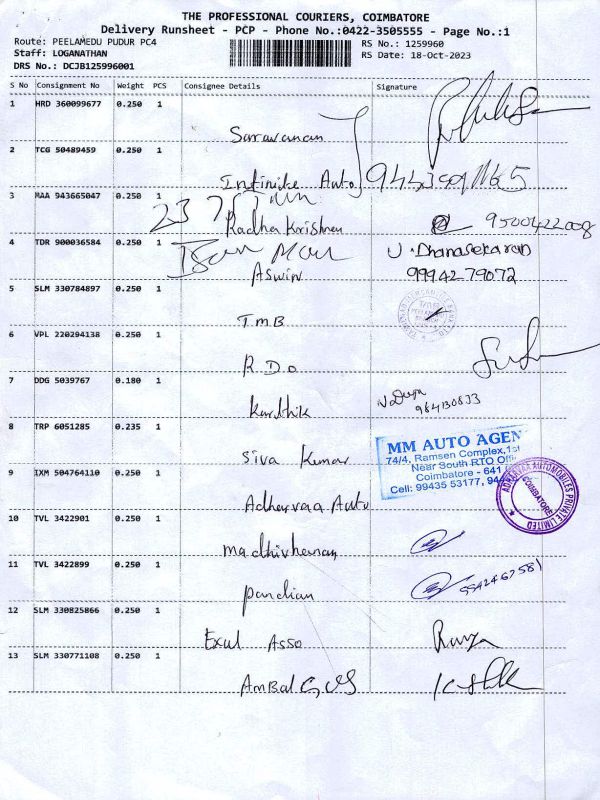 THE PROFESSIONAL COURIERS, COIMBATORE
Delivery Runsheet - PCP - Phone No.:0422-3505555 - Page No.:1
Route: PEELAMEDU PUDUR PC4
Staff: LOGANATHAN
DRS No.: DCJB125996001
RS No.: 1259960
RS Date: 18-Oct-2023
S No Consignment No Weight PCS Consignee Details Signature
1 HRD 360099677 0.250 1
Saravanan
2 TCG 50489459 0.250 1
Infinite Auto
3 MAA 943665047 0.250 1
Radha Krishnan 9500422008
4 TDR 900036584 0.250 1
U. Dhanasekaran
Aswin 9994279072
5 SLM 330784897 0.250 1
TMB
6 VPL 220294138 0.250 1
R.D.O
7 DDG 5039767 0.180 1
Karthik
8 TRP 6051285 0.235 1
Siva Kumar
MM AUTO AGEN
74/4, Ramsen Complex,1st
Near South RTO Offi
Coimbatore - 641
Cell: 99435 53177, 944
9 IXM 504764110 0.250 1
Adharvaa Auto
ADHARVAA AUTOMOBILES PRIVATE LIMITED
COIMBATORE
10 TVL 3422901 0.250 1
Madhivhanan
11 TVL 3422899 0.250 1
Pandian
12 SLM 330825866 0.250 1
Exul Asso
13 SLM 330771108 0.250 1
Ambal